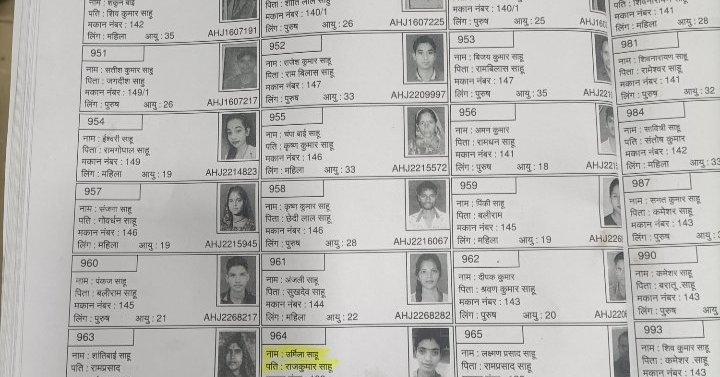 नाम : शकुन बाई
पति : शिव कुमार साहू
मकान नंबर : 142
लिंग : महिला आयु : 35 AHJ1607191
पिता : शांति लाल साहू
मकान नंबर : 140/1
लिंग : पुरुष आयु : 26 AHJ1607225
मकान नंबर : 140/1
लिंग : पुरुष आयु : 25
पिता : शिवनारायण साहू
मकान नंबर : 141
लिंग : महिला आयु : 28
951
नाम : सतीश कुमार साहू
पिता : जगदीश साहू
मकान नंबर : 149/1
लिंग : पुरुष आयु : 26 AHJ1607217
952
नाम : राजेश कुमार साहू
पिता : राम बिलास साहू
मकान नंबर : 147
लिंग : पुरुष आयु : 33 AHJ2209997
953
नाम : बिजय कुमार साहू
पिता : रामबिलास साहू
मकान नंबर : 147
लिंग : पुरुष आयु : 35
981
नाम : शिवनारायण साहू
पिता : रामेश्वर साहू
मकान नंबर : 141
लिंग : पुरुष आयु : 32
954
नाम : ईश्वरी साहू
पिता : रामगोपाल साहू
मकान नंबर : 149
लिंग : महिला आयु : 19 AHJ2214823
955
नाम : चंपा बाई साहू
पति : कृष्ण कुमार साहू
मकान नंबर : 146
लिंग : महिला आयु : 33 AHJ2215572
956
नाम : अमन कुमार
पिता : रामधन साहू
मकान नंबर : 141
लिंग : पुरुष आयु : 18
984
नाम : सावित्री साहू
पति : संतोष कुमार
मकान नंबर : 142
लिंग : महिला आयु : 33
957
नाम : संजना साहू
पति : गोवर्धन साहू
मकान नंबर : 146
लिंग : महिला आयु : 19 AHJ2215945
958
नाम : कृष्ण कुमार साहू
पिता : छेदी लाल साहू
मकान नंबर : 146
लिंग : पुरुष आयु : 28 AHJ2216067
959
नाम : पिंकी साहू
पिता : बलीराम
मकान नंबर : 145
लिंग : महिला आयु : 19
987
नाम : सनत कुमार साहू
पिता : कमेशर साहू
मकान नंबर : 143
लिंग : पुरुष आयु :
960
नाम : पंकज साहू
पिता : बलीराम साहू
मकान नंबर : 145
लिंग : पुरुष आयु : 21 AHJ2268217
961
नाम : अंजली साहू
पिता : सुखदेव साहू
मकान नंबर : 144
लिंग : महिला आयु : 22 AHJ2268282
962
नाम : दीपक कुमार
पिता : श्रवण कुमार साहू
मकान नंबर : 143
लिंग : पुरुष आयु : 20
990
नाम : कमेशर साहू
पिता : बरातू साहू
मकान नंबर : 143
लिंग : पुरुष
963
नाम : शांतिबाई साहू
पति : रामप्रसाद
964
नाम : उर्मिला साहू
पति : राजकुमार साहू
965
नाम : लक्ष्मण प्रसाद साहू
पिता : रामप्रसाद साहू
993
नाम : शिव कुमार साहू
पिता : कमेशर साहू
मकान नंबर : 143